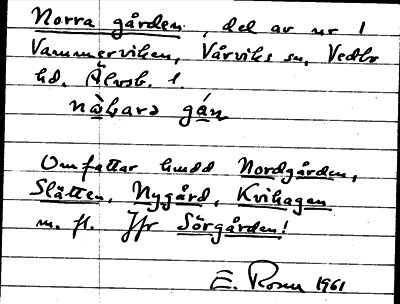 Norra gården, del av nr 1
Vammerviken, Vårviks sn, Vedbo
hd. Älvsb. l.
nàbara gán
Omfattar hmdd Nordgården,
Slätten, Nygård, Kvihagen
m. fl. Jfr Sörgården!
E. Rosen 1961